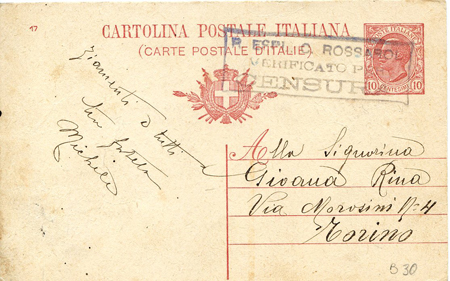 17
CARTOLINA POSTALE ITALIANA
(CARTE POSTALE D'ITALIE)
VERIFICATO P
CENSURA
POSTE ITALIANE
10 CENTESIMI 10
a tutti
Michele
Alla Signorina
Giovana Rina
Via Morosini N. 4
Torino
B 30